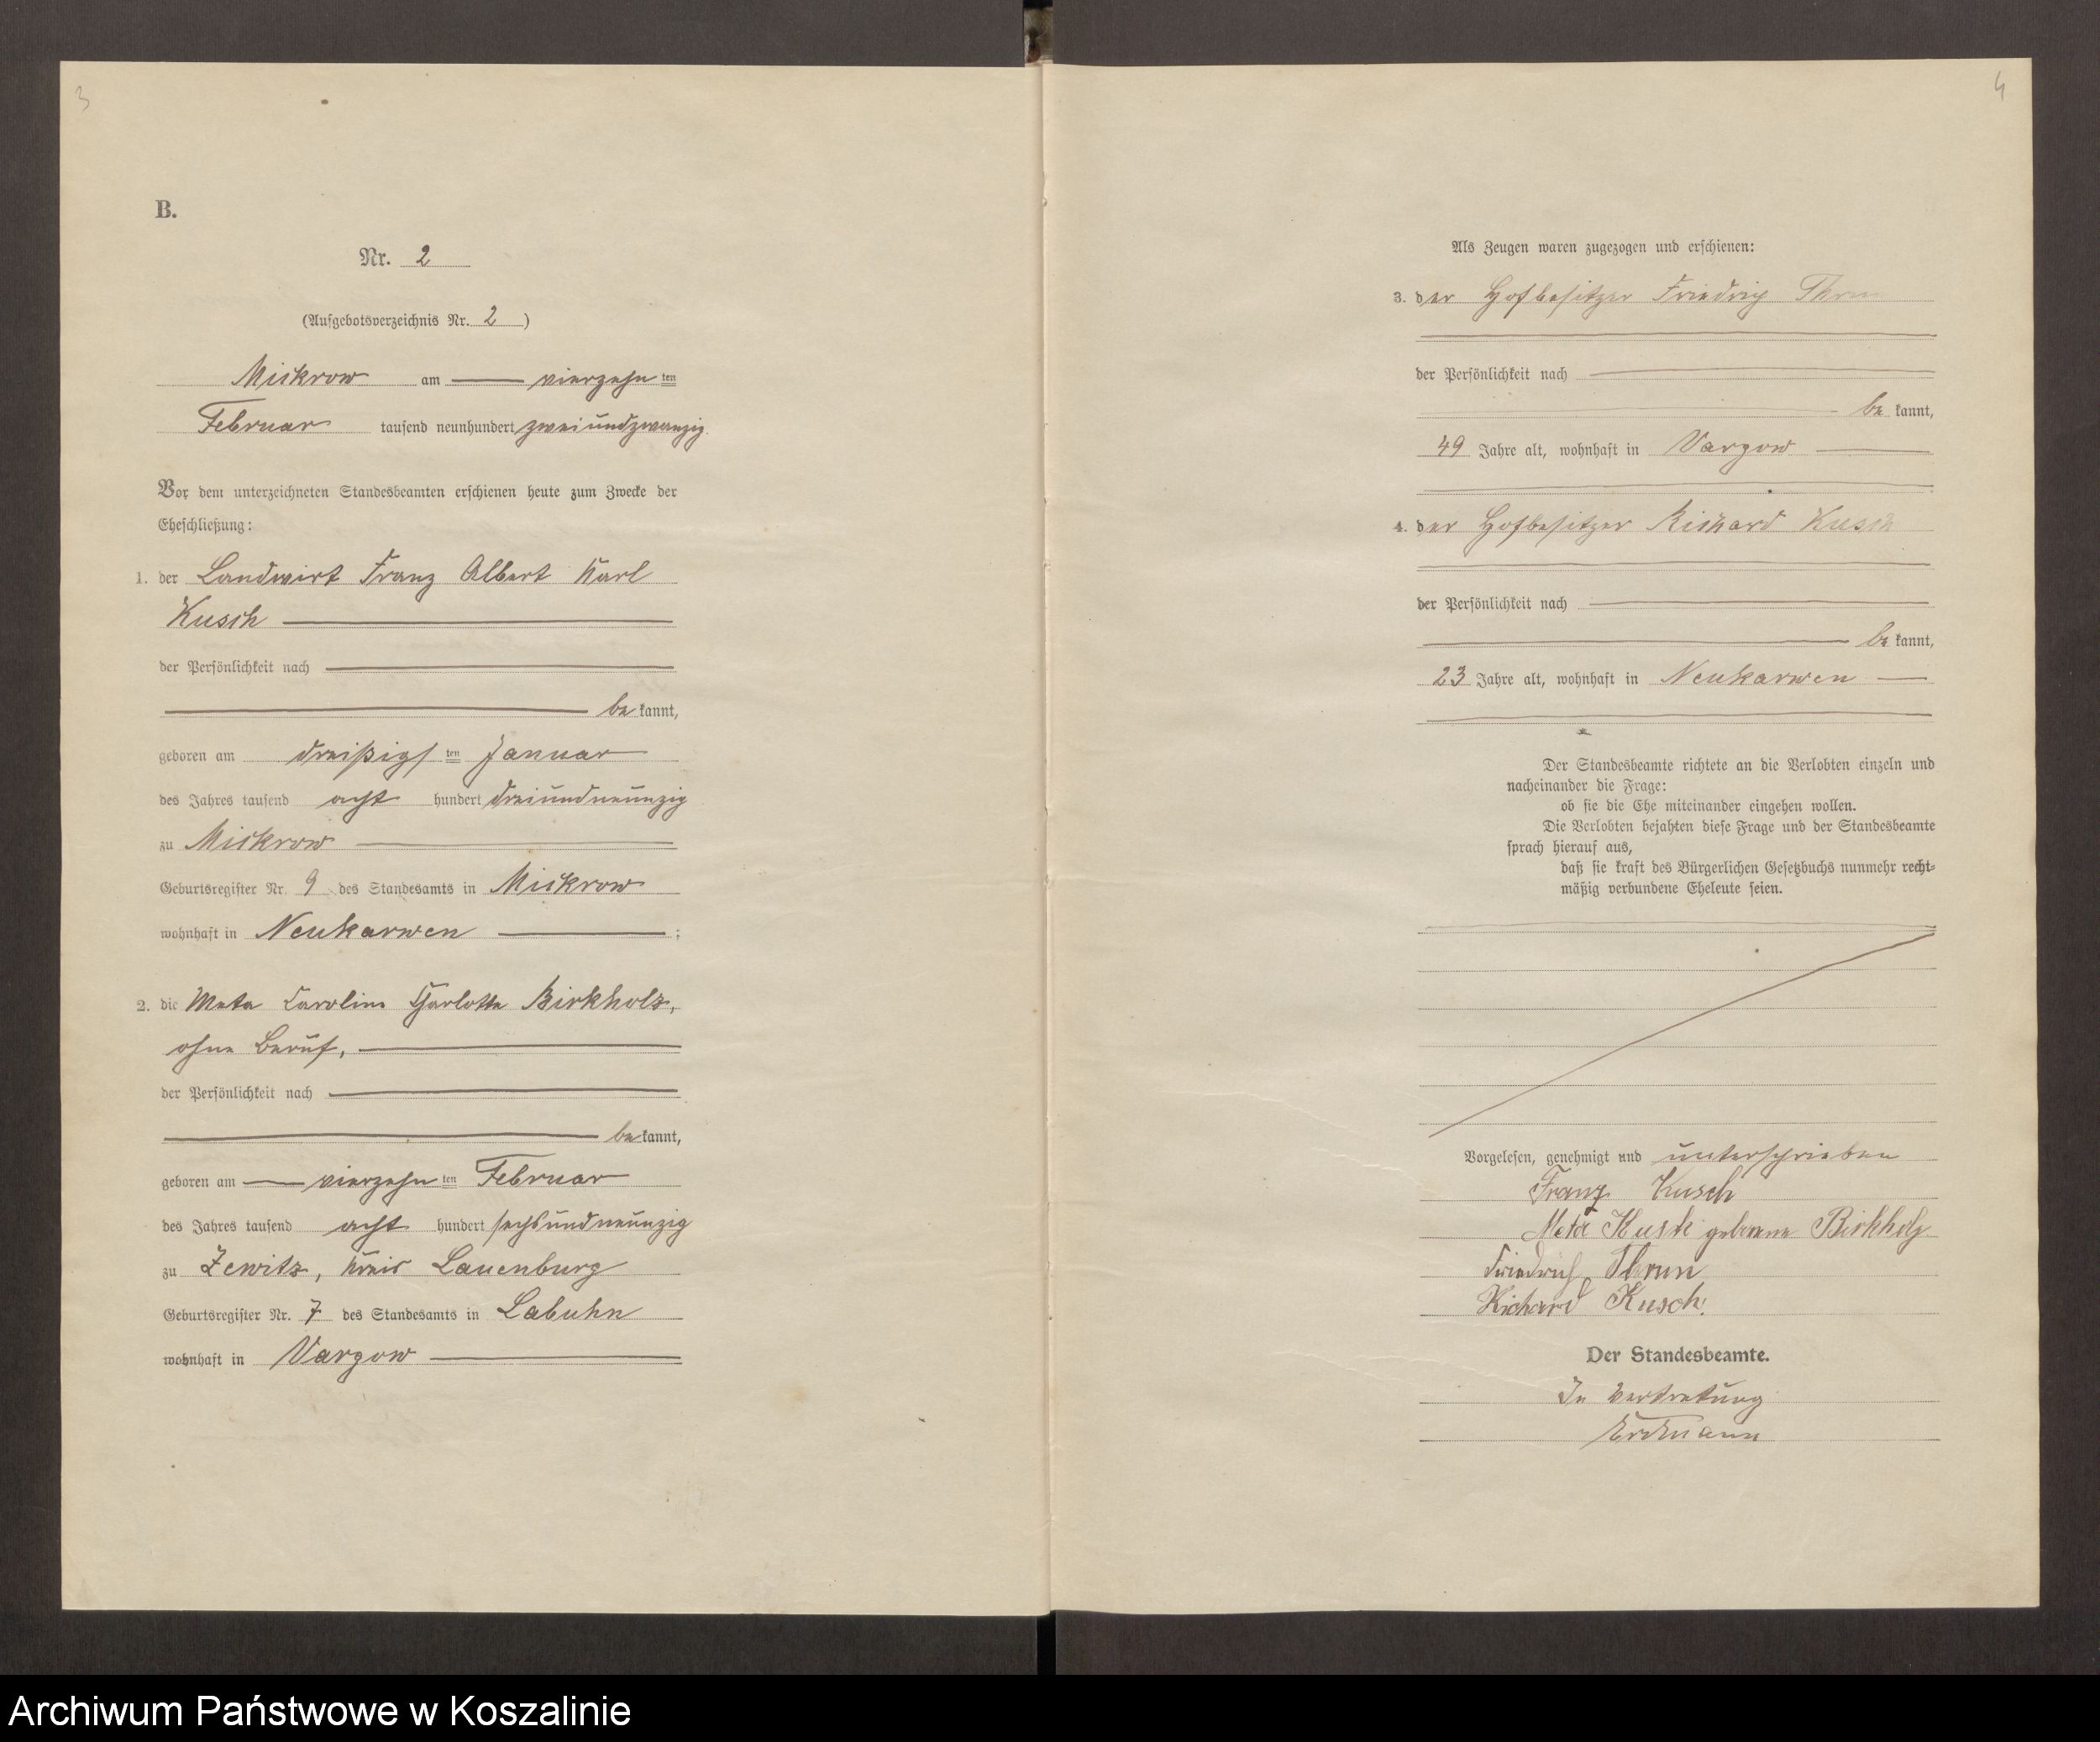 3
B.
Nr. 2
(Aufgebotsverzeichnis Nr. 2)
Mickrow am vierzehn ten
Februar tausend neunhundert zweiundzwanzig.
Vor dem unterzeichneten Standesbeamten erschienen heute zum Zwecke der
Eheschließung:
1. der Landwirt Franz Albert Karl
Kusch
der Persönlichkeit nach
be kannt,
geboren am dreißigs ten Januar
des Jahres tausend acht hundert dreiundneunzig
zu Mickrow
Geburtsregister Nr. 9 des Standesamts in Mickrow
wohnhaft in Neukarwen ;
2. die Meta Caroline Charlotte Birkholz,
ohne Beruf,
der Persönlichkeit nach
be kannt,
geboren am vierzehn ten Februar
des Jahres tausend acht hundert sechsundneunzig
zu Zewitz, Kreis Lauenburg
Geburtsregister Nr. 7 des Standesamts in Labuhn
wohnhaft in Varzow
4
Als Zeugen waren zugezogen und erschienen:
3. der Hofbesitzer Friedrich
der Persönlichkeit nach
be kannt,
49 Jahre alt, wohnhaft in Varzow
4. der Hofbesitzer Richard Kusch
der Persönlichkeit nach
be kannt,
23 Jahre alt, wohnhaft in Neukarwen
Der Standesbeamte richtete an die Verlobten einzeln und
nacheinander die Frage:
ob sie die Ehe miteinander eingehen wollen.
Die Verlobten bejahten diese Frage und der Standesbeamte
sprach hierauf aus,
daß sie kraft des Bürgerlichen Gesetzbuchs nunmehr recht-
mäßig verbundene Eheleute seien.
Vorgelesen, genehmigt und unterschrieben
Franz Kusch
Meta Kusch geborene Birkholz
Friedrich
Richard Kusch.
Der Standesbeamte.
In Vertretung
Erdmann
Archiwum Państwowe w Koszalinie